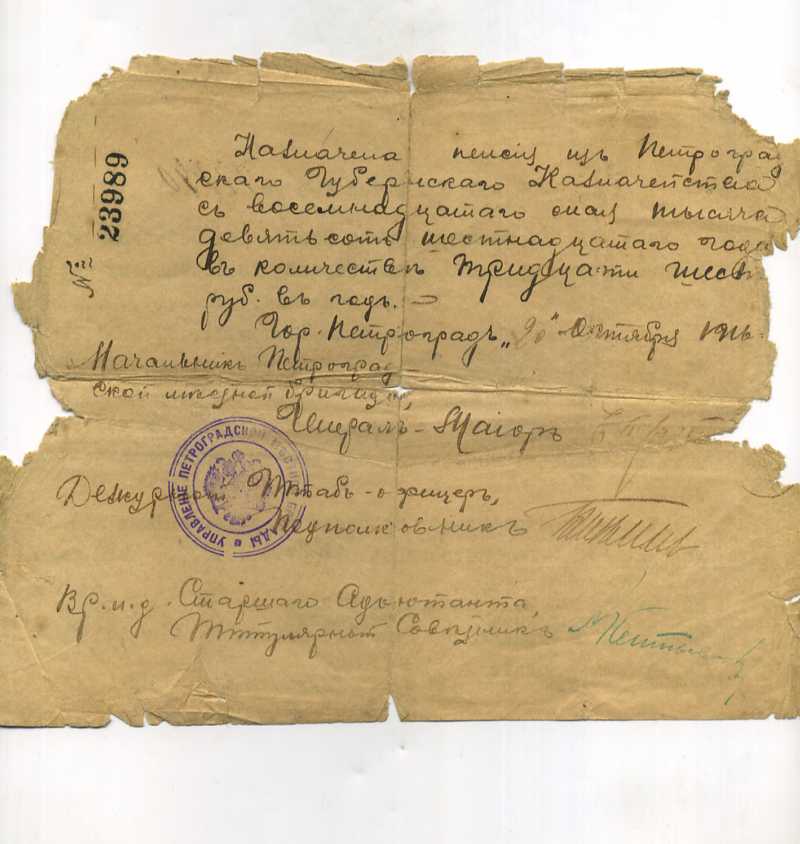 № 23989
Назначена пенсія изъ Петроград
скаго Губернскаго Казначейства
съ восемнадцатаго мая тысяча
девятьсотъ шестнадцатаго года
въ количествѣ тридцати шести
руб. въ годъ.
Гор. Петроградъ, „20" Октября 1916
Начальникъ Петроград
ской мѣстной бригады,
Генералъ-Маіоръ
УПРАВЛЕНІЕ ПЕТРОГРАДСКОЙ МѢСТНОЙ БРИГАДЫ
Дежурный Штабъ-офицеръ,
Подполковникъ
Вр. и. д. Старшаго Адъютанта,
Титулярный Совѣтникъ